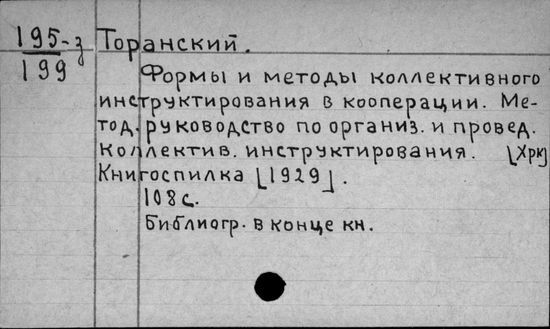 195-з Торанский.
199
Формы и методы коллективного
инструктирования в кооперации. Ме-
тод. руководство по организ. и провед.
коллектив. инструктирования. [Хрк]
Книгоспилка [1929].
108 с.
Библиогр. в конце кн.